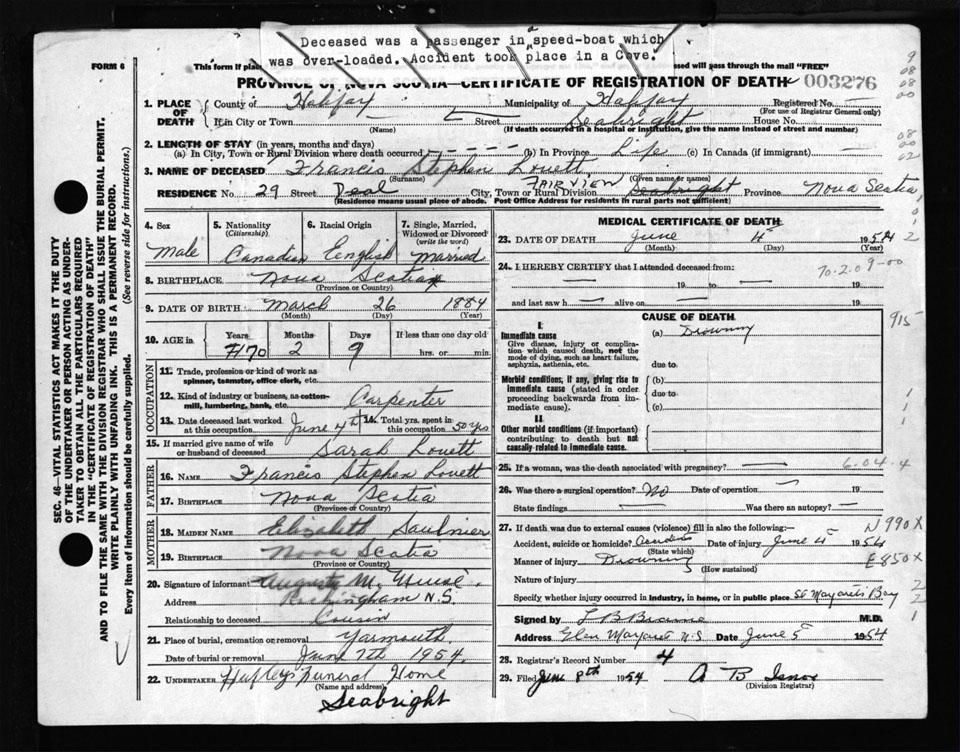 Deceased was a passenger in a speed-boat which
was over-loaded. Accident took place in a Cove.
FORM 6
This form if plac
ssed will pass through the mail "FREE"
PROVINCE OF NOVA SCOTIA—CERTIFICATE OF REGISTRATION OF DEATH
003276
1. PLACE OF DEATH
County of Halifax
Municipality of Halifax
Registered No.
(For use of Registrar General only)
If in City or Town
(Name)
Street
Seabright
House No.
(If death occurred in a hospital or institution, give the name instead of street and number)
2. LENGTH OF STAY (in years, months and days)
(a) In City, Town or Rural Division where death occurred
(b) In Province Life
(c) In Canada (if immigrant)
3. NAME OF DECEASED Francis Stephen Lovett
(Surname) (Given name or names)
RESIDENCE No. 29 Street Deal
City, Town or Rural Division FAIRVIEW Seabright Province Nova Scotia
(Residence means usual place of abode. Post Office Address for residents in rural parts not sufficient)
4. Sex
Male
5. Nationality
(Citizenship)
Canadian
6. Racial Origin
English
7. Single, Married, Widowed or Divorced
(write the word)
Married
8. BIRTHPLACE Nova Scotia
(Province or Country)
9. DATE OF BIRTH March 26 1884
(Month) (Day) (Year)
10. AGE in
Years
70
Months
2
Days
9
If less than one day old
hrs. or min.
OCCUPATION
11. Trade, profession or kind of work as spinner, teamster, office clerk, etc.
12. Kind of industry or business, as cotton-mill, lumbering, bank, etc.
Carpenter
13. Date deceased last worked at this occupation June 4th
14. Total yrs. spent in this occupation 50 yrs
15. If married give name of wife or husband of deceased Sarah Lovett
FATHER
16. NAME Francis Stephen Lovett
17. BIRTHPLACE Nova Scotia
(Province or Country)
MOTHER
18. MAIDEN NAME Elizabeth Saulnier
19. BIRTHPLACE Nova Scotia
(Province or Country)
20. Signature of informant M. Muise.
Address Rockingham N.S.
Relationship to deceased Cousin
21. Place of burial, cremation or removal Yarmouth.
Date of burial or removal June 7th 1954.
22. UNDERTAKER Funeral Home
(Name and address)
Seabright
MEDICAL CERTIFICATE OF DEATH
23. DATE OF DEATH June 4 1954
(Month) (Day) (Year)
24. I HEREBY CERTIFY that I attended deceased from:
19 to 19
and last saw h alive on 19
CAUSE OF DEATH
I.
Immediate cause
Give disease, injury or complication which caused death, not the mode of dying, such as heart failure, asphyxia, asthenia, etc.
(a) Drowning
due to
Morbid conditions, if any, giving rise to immediate cause (stated in order proceeding backwards from immediate cause).
(b)
due to
(c)
II.
Other morbid conditions (if important) contributing to death but not causally related to immediate cause.
25. If a woman, was the death associated with pregnancy?
26. Was there a surgical operation? No Date of operation 19
State findings Was there an autopsy?
27. If death was due to external causes (violence) fill in also the following:—
Accident, suicide or homicide? Accident Date of injury June 4 1954
(State which)
Manner of injury Drowning
(How sustained)
Nature of injury
Specify whether injury occurred in industry, in home, or in public place St Margarets Bay
Signed by M.D.
Address Glen Margaret N.S Date June 5 1954
28. Registrar's Record Number 4
29. Filed June 8th 1954
(Division Registrar)
915
N990X
E850X
SEC. 46—VITAL STATISTICS ACT MAKES IT THE DUTY
OF THE UNDERTAKER OR PERSON ACTING AS UNDER-
TAKER TO OBTAIN ALL THE PARTICULARS REQUIRED
IN THE "CERTIFICATE OF REGISTRATION OF DEATH"
AND TO FILE THE SAME WITH THE DIVISION REGISTRAR WHO SHALL ISSUE THE BURIAL PERMIT.
WRITE PLAINLY WITH UNFADING INK. THIS IS A PERMANENT RECORD.
Every item of information should be carefully supplied. (See reverse side for instructions.)